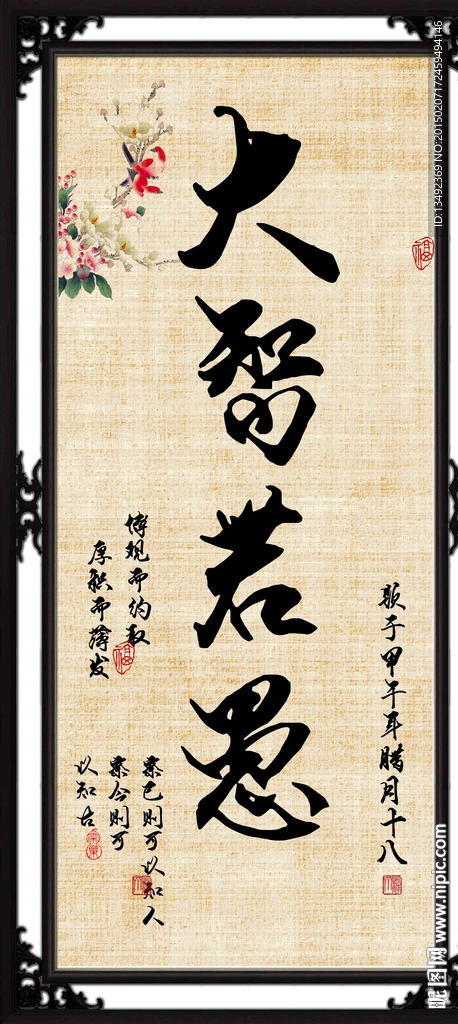 大智若愚
歇子甲午年腊月十八
博观而约取
厚积而薄发
察己则可以知人
察今则可
以知古
福
福
ID:13492369 NO:20150207172459494146
昵图网 www.nipic.com